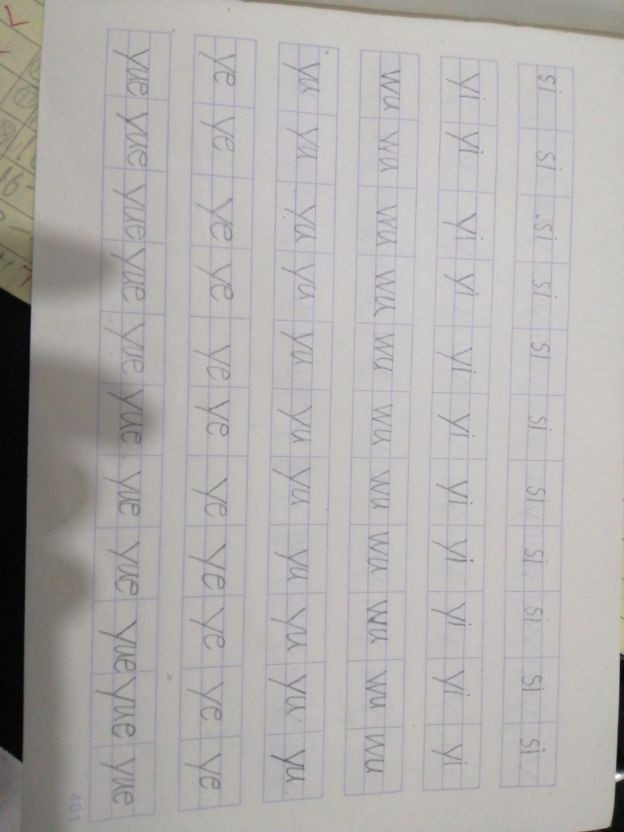 si si si si si si si si si si si
yi yi yi yi yi yi yi yi yi yi yi
wu wu wu wu wu wu wu wu wu wu wu
yu yu yu yu yu yu yu yu yu yu yu
ye ye ye ye ye ye ye ye ye ye ye
yue yue yue yue yue yue yue yue yue yue yue
401